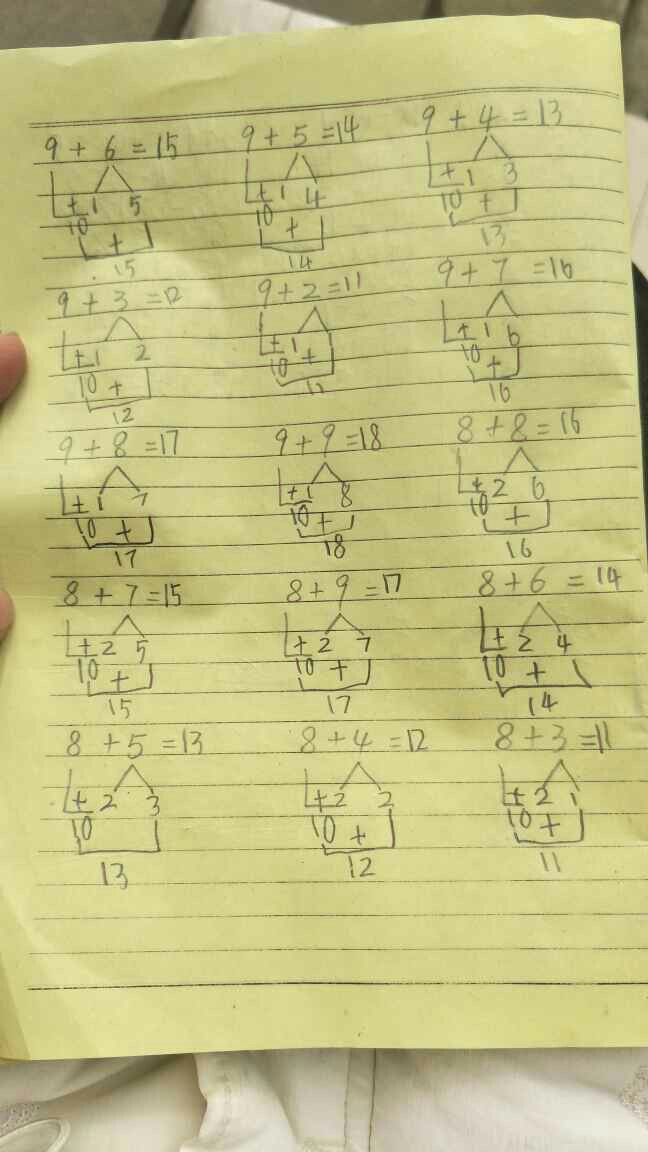 9 + 6 = 15 9 + 5 = 14 9 + 4 = 13
+ 1 5 + 1 4 + 1 3
10 + 10 + 10 +
15 14 13
9 + 3 = 12 9 + 2 = 11 9 + 7 = 16
+ 1 2 + 1 + 1 6
10 + 10 + 10 +
12 11 16
9 + 8 = 17 9 + 9 = 18 8 + 8 = 16
+ 1 7 + 1 8 + 2 6
10 + 10 + 10 +
17 18 16
8 + 7 = 15 8 + 9 = 17 8 + 6 = 14
+ 2 5 + 2 7 + 2 4
10 + 10 + 10 +
15 17 14
8 + 5 = 13 8 + 4 = 12 8 + 3 = 11
+ 2 3 + 2 2 + 2 1
10 10 + 10 +
13 12 11